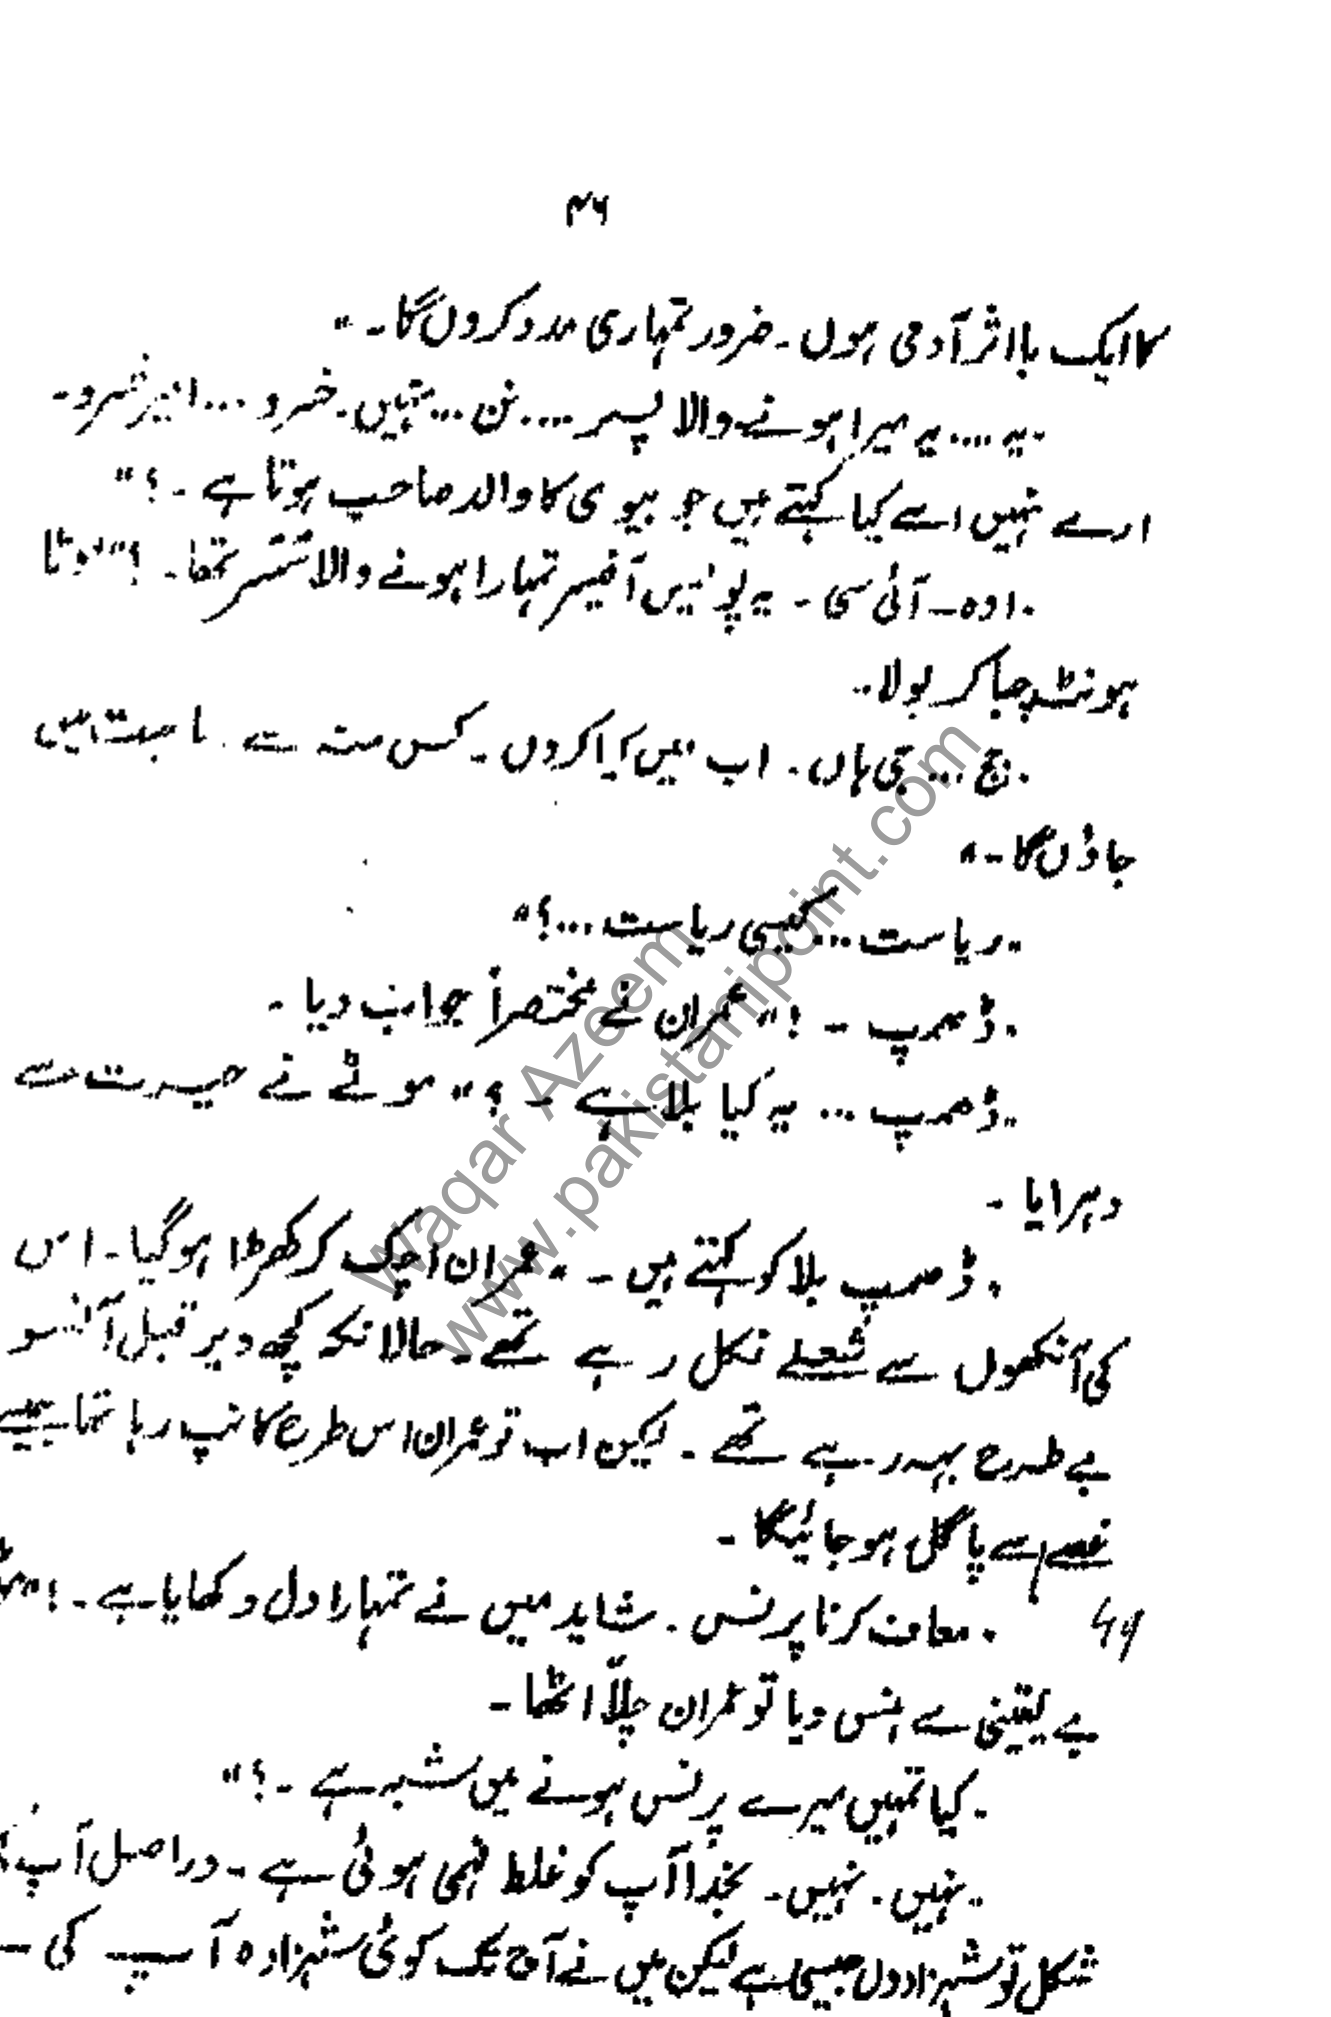 ۴۶
کا ایک بااثر آدمی ہوں۔ ضرور تمہاری مدد کروں گا۔"
"یہ .... یہ میرا ہونے والا پسر .... نن ... نہیں۔ خسرو ... امیر خسرو۔
ارے نہیں اسے کیا کہتے ہیں جو بیوی کا والد صاحب ہوتا ہے۔؟"
"اوہ۔ آئی سی۔ یہ پولیس آفیسر تمہارا ہونے والا سسر تھا۔؟" موٹا
ہونٹ چبا کر بولا۔
"جج ... جی ہاں۔ اب میں کیا کروں۔ کس منہ سے ریاست میں
جاؤں گا۔"
"ریاست ... کیسی ریاست ...؟"
"ڈھمپ۔!" عمران نے مختصراً جواب دیا۔
"ڈھمپ ... یہ کیا بلا ہے۔؟" موٹے نے حیرت سے
دہرایا۔
"ڈھمپ بلا کو کہتے ہیں۔" عمران اچک کر کھڑا ہو گیا۔ اس
کی آنکھوں سے شعلے نکل رہے تھے۔ حالانکہ کچھ دیر قبل آنسو
بے طرح بہہ رہے تھے۔ لیکن اب تو عمران اس طرح کانپ رہا تھا جیسے
غصے سے پاگل ہو جائیگا۔
"معاف کرنا پرنس۔ شاید میں نے تمہارا دل دکھایا ہے۔!"
بے یقینی سے ہنس دیا تو عمران چلّا اٹھا۔
"کیا تمہیں میرے پرنس ہونے میں شبہ ہے۔؟"
"نہیں۔ نہیں۔ بخدا آپ کو غلط فہمی ہوئی ہے۔ دراصل آپ
شکل تو شہزادوں جیسی ہے لیکن میں نے آج تک کوئی شہزادہ آپ کی
Waqar Azeem
www.pakistanipoint.com